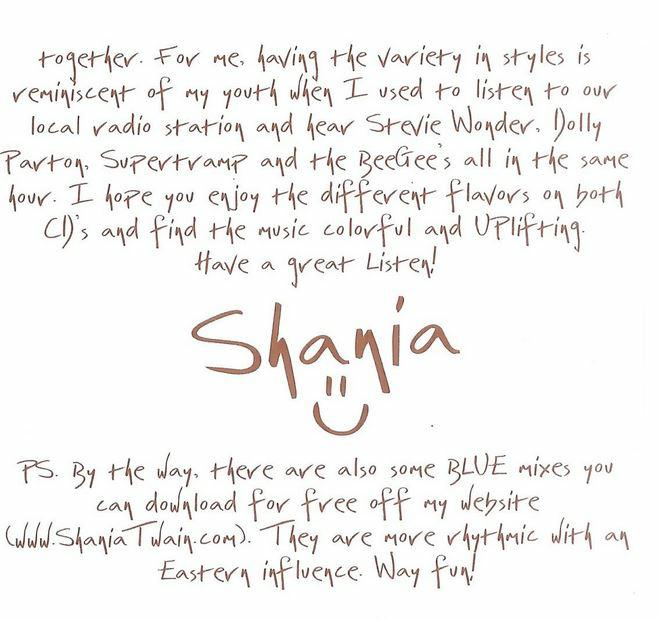 together. For me, having the variety in styles is
reminiscent of my youth when I used to listen to our
local radio station and hear Stevie Wonder, Dolly
Parton, Supertramp and the BeeGee's all in the same
hour. I hope you enjoy the different flavors on both
CD's and find the music colorful and UPlifting.
Have a great Listen!
Shania
PS. By the way, there are also some BLUE mixes you
can download for free off my website
(www.ShaniaTwain.com). They are more rhythmic with an
Eastern influence. Way fun!